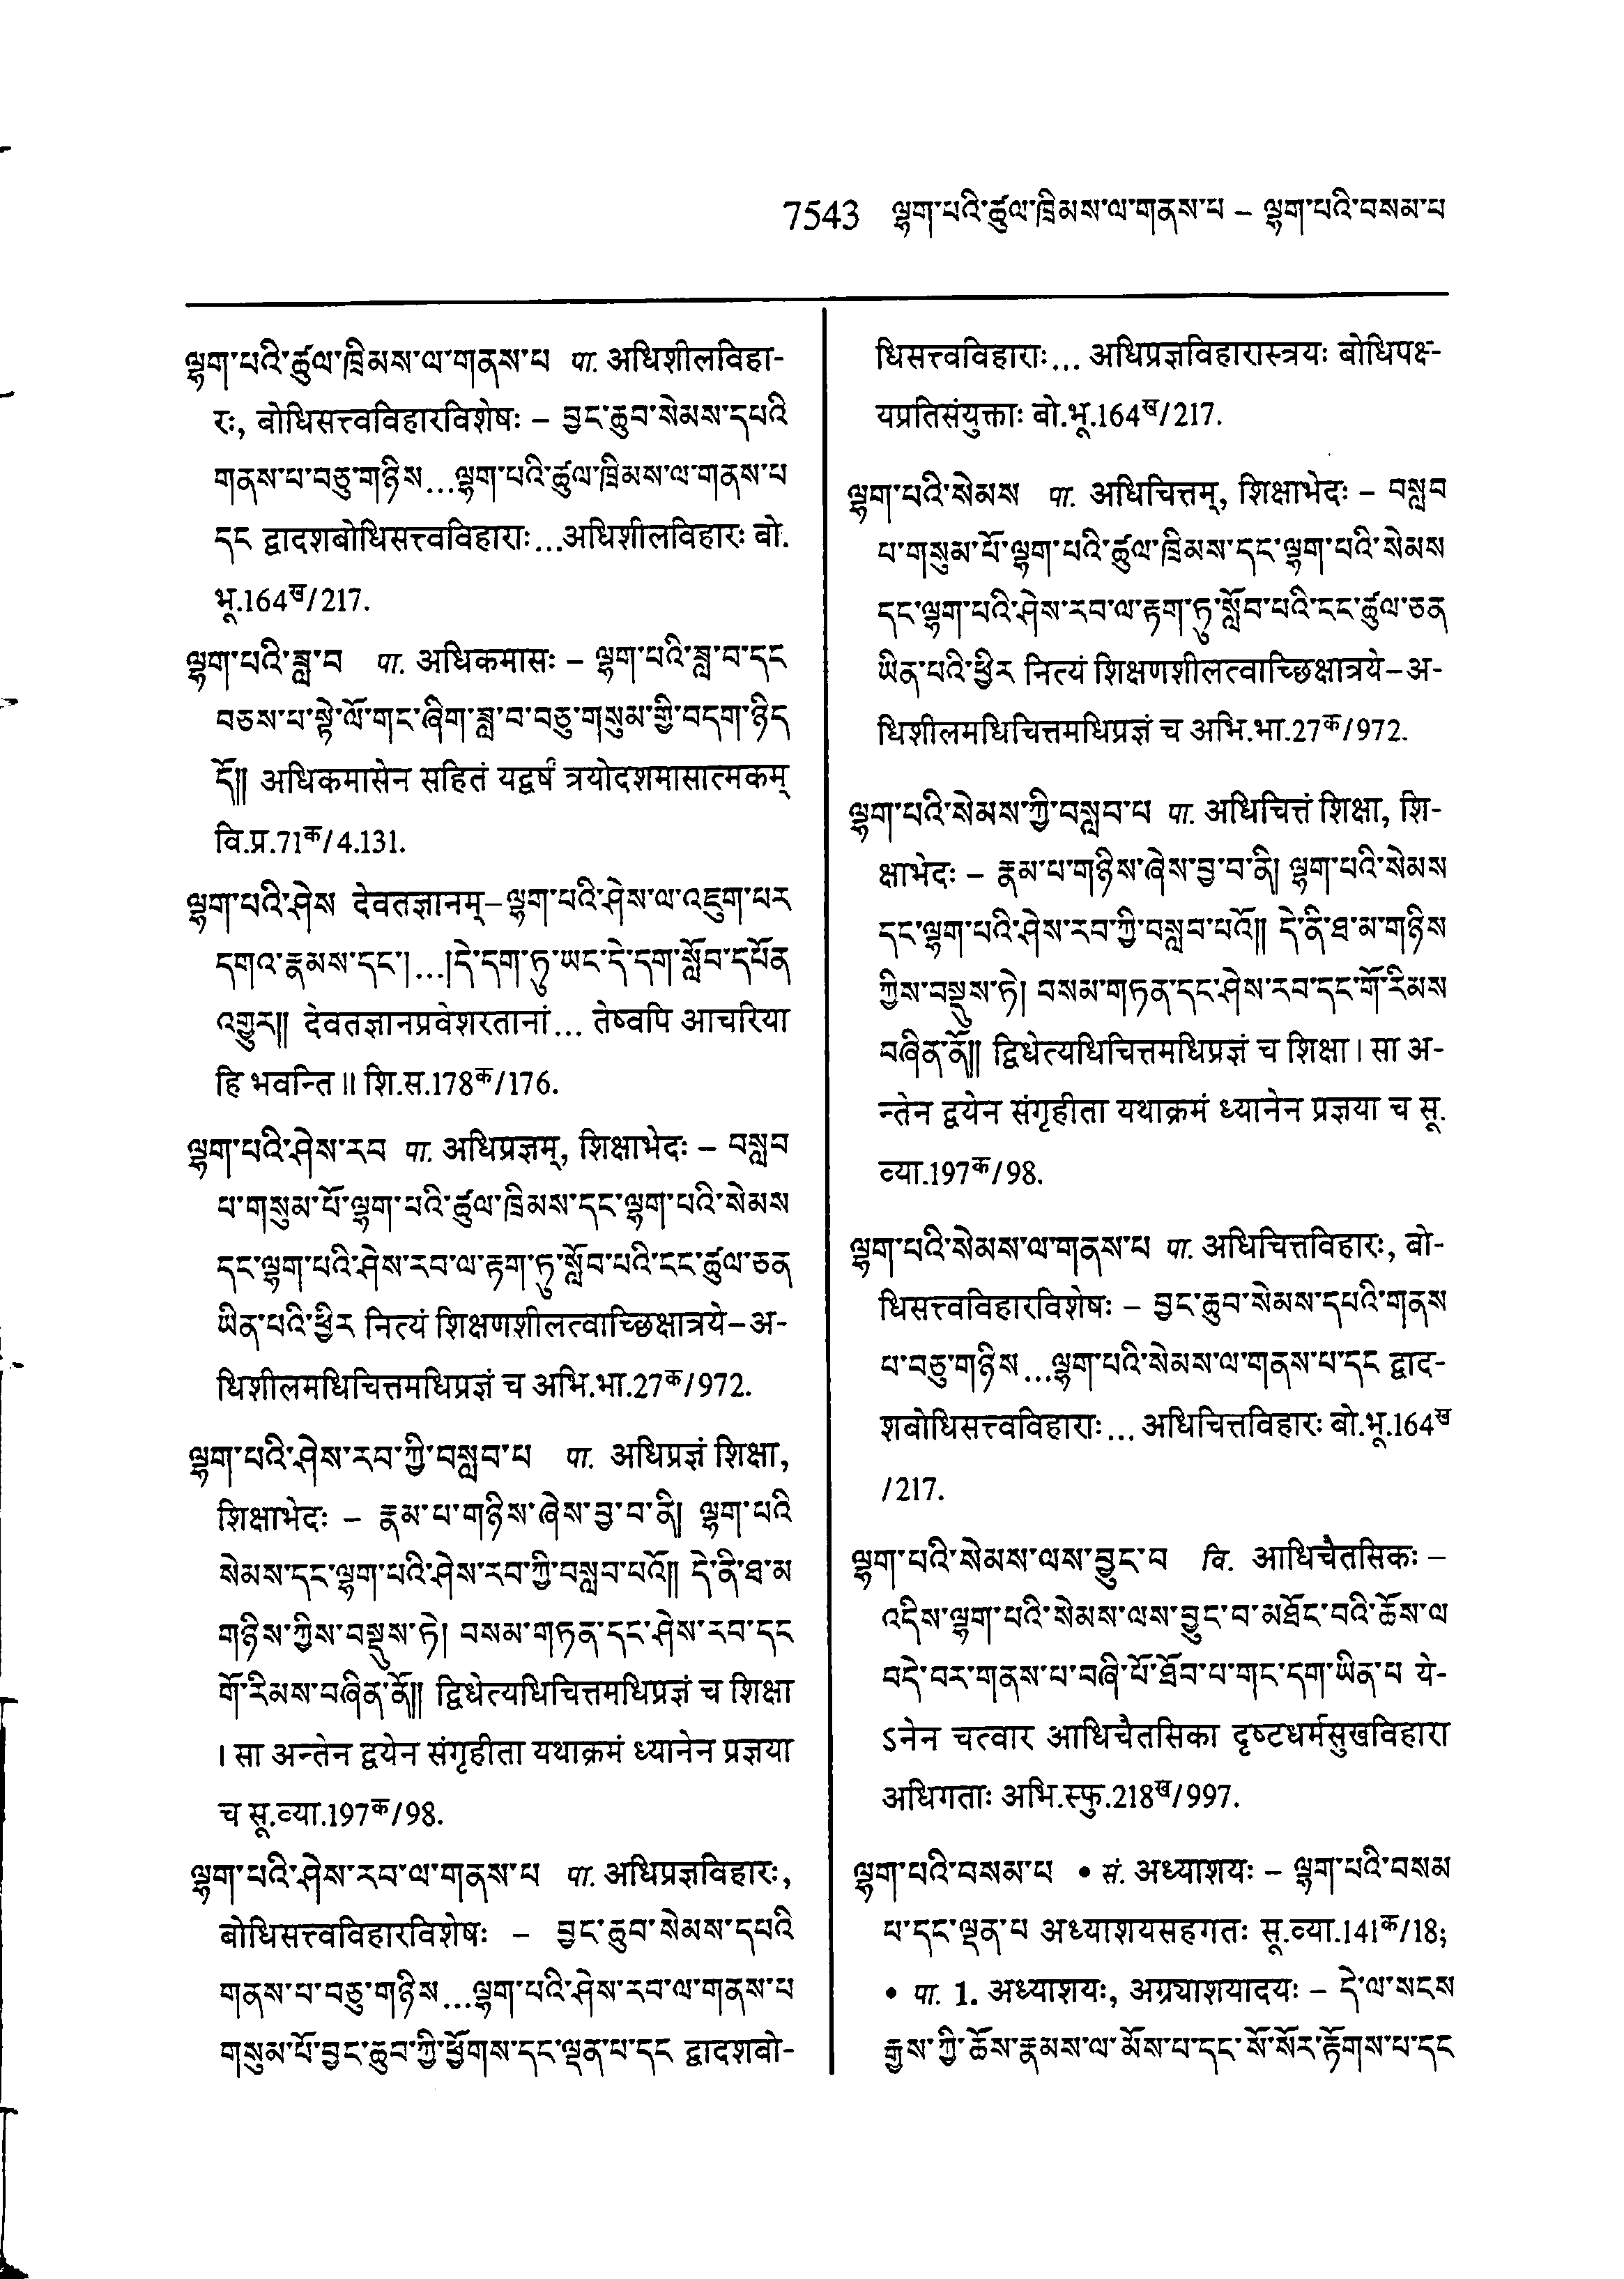 7543 ལྷག་པའི་ཚུལ་ཁྲིམས་ལ་གནས་པ – ལྷག་པའི་བསམ་པ
ལྷག་པའི་ཚུལ་ཁྲིམས་ལ་གནས་པ पा. अधिशीलविहा-
रः, बोधिसत्त्वविहारविशेषः – བྱང་ཆུབ་སེམས་དཔའི
གནས་པ་བཅུ་གཉིས...ལྷག་པའི་ཚུལ་ཁྲིམས་ལ་གནས་པ
དང द्वादशबोधिसत्त्वविहाराः...अधिशीलविहारः बो.
भू.164ख/217.
ལྷག་པའི་ཟླ་བ पा. अधिकमासः – ལྷག་པའི་ཟླ་བ་དང
བཅས་པ་སྟེ་ལོ་གང་ཞིག་ཟླ་བ་བཅུ་གསུམ་གྱི་བདག་ཉིད
དོ།། अधिकमासेन सहितं यद्वर्षं त्रयोदशमासात्मकम्
वि.प्र.71क/4.131.
ལྷག་པའི་ཤེས देवतज्ञानम्–ལྷག་པའི་ཤེས་ལ་འཇུག་པར
དགའ་རྣམས་དང་།...།དེ་དག་ཏུ་ཡང་དེ་དག་སློབ་དཔོན
འགྱུར།། देवतज्ञानप्रवेशरतानां... तेष्वपि आचरिया
हि भवन्ति ॥ शि.स.178क/176.
ལྷག་པའི་ཤེས་རབ पा. अधिप्रज्ञम्, शिक्षाभेदः – བསླབ
པ་གསུམ་པོ་ལྷག་པའི་ཚུལ་ཁྲིམས་དང་ལྷག་པའི་སེམས
དང་ལྷག་པའི་ཤེས་རབ་ལ་རྟག་ཏུ་སློབ་པའི་ངང་ཚུལ་ཅན
ཡིན་པའི་ཕྱིར नित्यं शिक्षणशीलत्वाच्छिक्षात्रये–अ-
धिशीलमधिचित्तमधिप्रज्ञं च अभि.भा.27क/972.
ལྷག་པའི་ཤེས་རབ་ཀྱི་བསླབ་པ पा. अधिप्रज्ञं शिक्षा,
शिक्षाभेदः – རྣམ་པ་གཉིས་ཞེས་བྱ་བ་ནི། ལྷག་པའི
སེམས་དང་ལྷག་པའི་ཤེས་རབ་ཀྱི་བསླབ་པའོ།། དེ་ནི་ཐ་མ
གཉིས་ཀྱིས་བསྡུས་ཏེ། བསམ་གཏན་དང་ཤེས་རབ་དང
གོ་རིམས་བཞིན་ནོ།། द्विधेत्यधिचित्तमधिप्रज्ञं च शिक्षा
। सा अन्तेन द्वयेन संगृहीता यथाक्रमं ध्यानेन प्रज्ञया
च सू.व्या.197क/98.
ལྷག་པའི་ཤེས་རབ་ལ་གནས་པ पा. अधिप्रज्ञविहारः,
बोधिसत्त्वविहारविशेषः – བྱང་ཆུབ་སེམས་དཔའི
གནས་པ་བཅུ་གཉིས...ལྷག་པའི་ཤེས་རབ་ལ་གནས་པ
གསུམ་པོ་བྱང་ཆུབ་ཀྱི་ཕྱོགས་དང་ལྡན་པ་དང द्वादशबो-
धिसत्त्वविहाराः... अधिप्रज्ञविहारास्त्रयः बोधिपक्ष-
यप्रतिसंयुक्ताः बो.भू.164ख/217.
ལྷག་པའི་སེམས पा. अधिचित्तम्, शिक्षाभेदः – བསླབ
པ་གསུམ་པོ་ལྷག་པའི་ཚུལ་ཁྲིམས་དང་ལྷག་པའི་སེམས
དང་ལྷག་པའི་ཤེས་རབ་ལ་རྟག་ཏུ་སློབ་པའི་ངང་ཚུལ་ཅན
ཡིན་པའི་ཕྱིར नित्यं शिक्षणशीलत्वाच्छिक्षात्रये–अ-
धिशीलमधिचित्तमधिप्रज्ञं च अभि.भा.27क/972.
ལྷག་པའི་སེམས་ཀྱི་བསླབ་པ पा. अधिचित्तं शिक्षा, शि-
क्षाभेदः – རྣམ་པ་གཉིས་ཞེས་བྱ་བ་ནི། ལྷག་པའི་སེམས
དང་ལྷག་པའི་ཤེས་རབ་ཀྱི་བསླབ་པའོ།། དེ་ནི་ཐ་མ་གཉིས
ཀྱིས་བསྡུས་ཏེ། བསམ་གཏན་དང་ཤེས་རབ་དང་གོ་རིམས
བཞིན་ནོ།། द्विधेत्यधिचित्तमधिप्रज्ञं च शिक्षा । सा अ-
न्तेन द्वयेन संगृहीता यथाक्रमं ध्यानेन प्रज्ञया च सू.
व्या.197क/98.
ལྷག་པའི་སེམས་ལ་གནས་པ पा. अधिचित्तविहारः, बो-
धिसत्त्वविहारविशेषः – བྱང་ཆུབ་སེམས་དཔའི་གནས
པ་བཅུ་གཉིས...ལྷག་པའི་སེམས་ལ་གནས་པ་དང द्वाद-
शबोधिसत्त्वविहाराः... अधिचित्तविहारः बो.भू.164ख
/217.
ལྷག་པའི་སེམས་ལས་བྱུང་བ वि. आधिचैतसिकः –
འདིས་ལྷག་པའི་སེམས་ལས་བྱུང་བ་མཐོང་བའི་ཆོས་ལ
བདེ་བར་གནས་པ་བཞི་པོ་ཐོབ་པ་གང་དག་ཡིན་པ ये-
ऽनेन चत्वार आधिचैतसिका दृष्टधर्मसुखविहारा
अधिगताः अभि.स्फु.218ख/997.
ལྷག་པའི་བསམ་པ • सं. अध्याशयः – ལྷག་པའི་བསམ
པ་དང་ལྡན་པ अध्याशयसहगतः सू.व्या.141क/18;
• पा. 1. अध्याशयः, अग्र्याशयादयः – དེ་ལ་སངས
རྒྱས་ཀྱི་ཆོས་རྣམས་ལ་མོས་པ་དང་སོ་སོར་རྟོགས་པ་དང